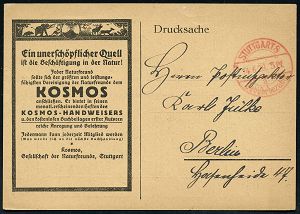 Ein unerschöpflicher Quell
ist die Beschäftigung in der Natur!
Jeder Naturfreund
sollte sich der größten und leistungs-
fähigsten Vereinigung der Naturfreunde dem
KOSMOS
anschließen. Er bietet in seinen
monatl. erscheinenden Heften des
KOSMOS-HANDWEISERS
u. den kostenlosen Buchbeilagen erster Autoren
reiche Anregung und Belehrung
Jedermann kann jederzeit Mitglied werden
Kosmos,
Gesellschaft der Naturfreunde, Stuttgart
Drucksache
STUTTGART
Herrn Postinspektor
Karl Julke
Berlin
Hasenheide 47.